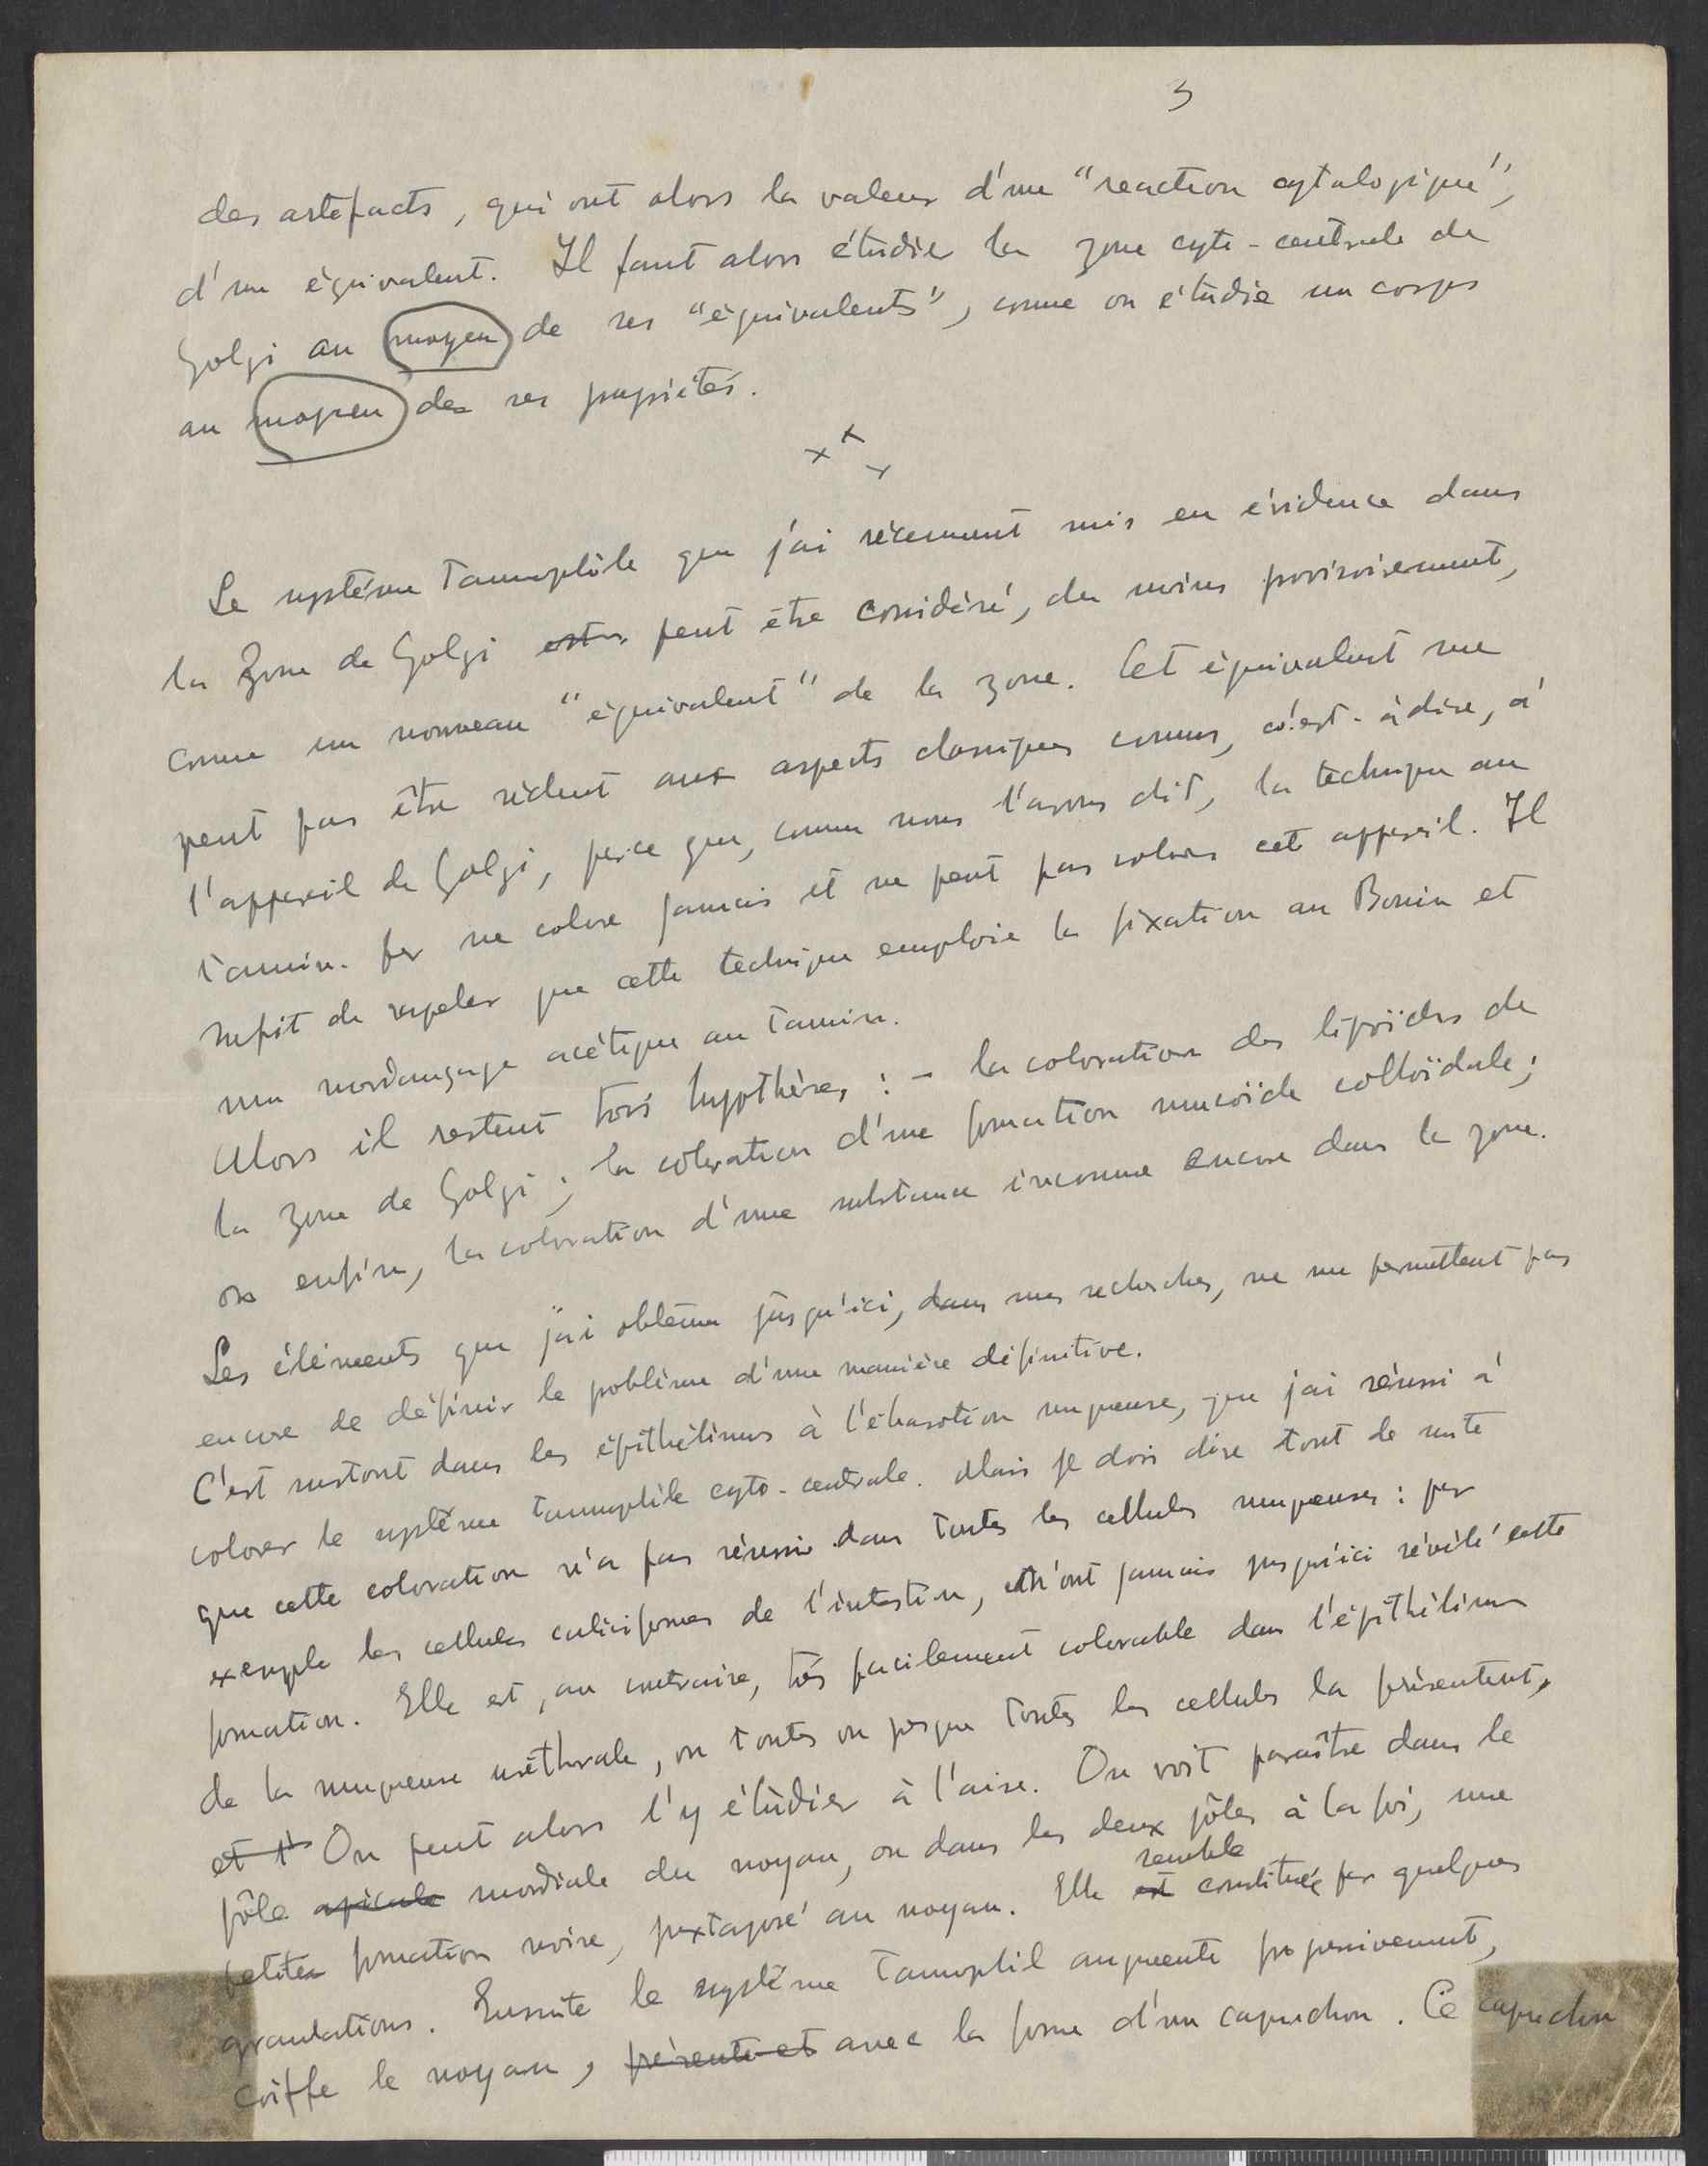 3
des artefacts, qui ont alors la valeur d'une "reaction cytologique",
d'un équivalent. Il faut alors étudier la zone cyto-centrale de
Golgi au moyen de ses "équivalents", comme on étudie un corps
au moyen de ses propriétés.
x x x
Le système tannophile que j'ai récemment mis en évidence dans
la Zone de Golgi est peut être considéré, du moins provisoirement,
comme un nouveau "équivalent" de la zone. Cet équivalent ne
peut pas être réduit aux aspects classiques connus, c'est-à-dire, à
l'appareil de Golgi, parce que, comme nous l'avons dit, la technique au
tannin-fer ne colore jamais et ne peut pas colorer cet appareil. Il
sufit de rapeler que cette technique emploie la fixation au Bouin et
un mordançage acétique au tannin.
Alors il restent trois hypothèses : - la coloration des lipoïdes de
la zone de Golgi ; la coloration d'une formation mucoïde colloïdale ;
ou enfin, la coloration d'une substance inconnue encore dans la zone.
Les éléments que j'ai obtenu jusqu'ici, dans mes recherches, ne me permettent pas
encore de définir le problème d'une manière définitive.
C'est surtout dans les épithéliums à l'élaboration muqueuse, que j'ai réussi à
colorer le système tannophile cyto-centrale. Mais je dois dire tout de suite
que cette coloration n'a pas réussie dans toutes les cellules muqueuses : par
exemple les cellules caliciformes de l'intestin, n'ont jamais jusqu'ici révélé cette
formation. Elle est, au contraire, très facilement colorable dans l'épithélium
de la muqueuse uréthrale, ou toutes ou presque toutes les cellules la présentent.
et l' On peut alors l'y étudier à l'aise. On voit paraître dans le
pôle apicale mondiale du noyau, ou dans les deux pôles à la foi, une
petite formation noire, juxtaposé au noyau. Elle est semble constituée par quelques
granulations. Ensuite le système tannophil augmente progressivement,
coiffe le noyau, présente et avec la forme d'un capuchon. Ce capuchon